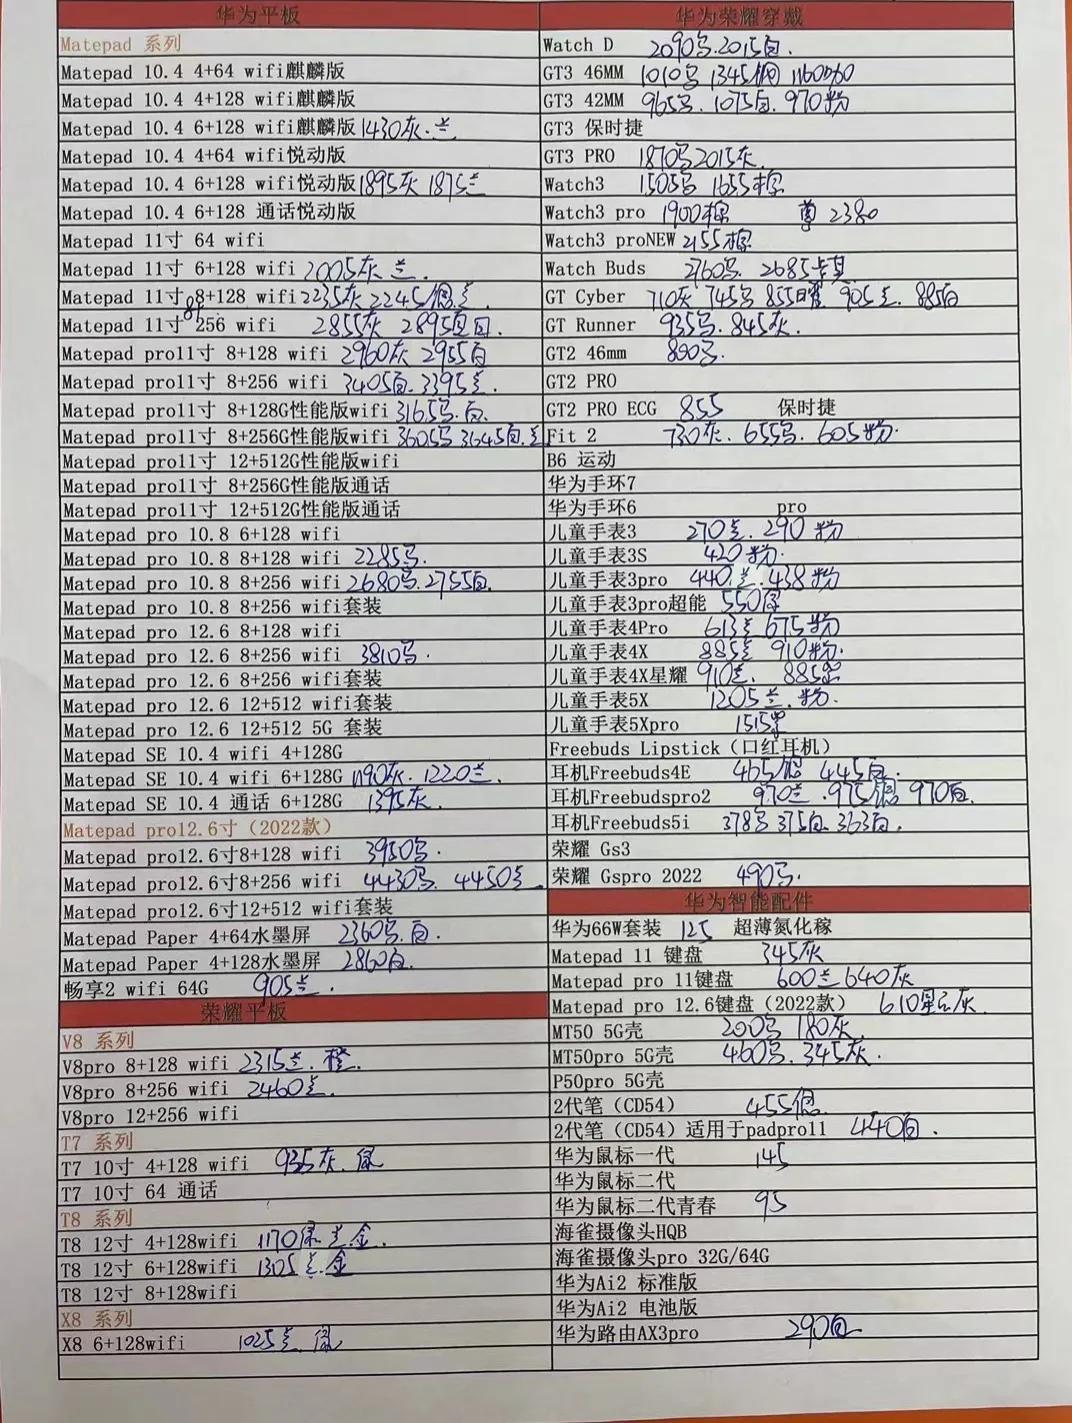 华为平板
Matepad 系列
Matepad 10.4 4+64 wifi麒麟版
Matepad 10.4 4+128 wifi麒麟版
Matepad 10.4 6+128 wifi麒麟版 1430灰.兰
Matepad 10.4 4+64 wifi悦动版
Matepad 10.4 6+128 wifi悦动版 1895灰 1875兰
Matepad 10.4 6+128 通话悦动版
Matepad 11寸 64 wifi
Matepad 11寸 6+128 wifi 2005灰 兰.
Matepad 11寸 8+128 wifi 2235灰 2245银.兰
Matepad 11寸 8+ 256 wifi 2855灰 2895
Matepad pro11寸 8+128 wifi 2960灰 2955白
Matepad pro11寸 8+256 wifi 3405白.3395兰.
Matepad pro11寸 8+128G性能版wifi 3165.白.
Matepad pro11寸 8+256G性能版wifi 3605 3645白.兰
Matepad pro11寸 12+512G性能版wifi
Matepad pro11寸 8+256G性能版通话
Matepad pro11寸 12+512G性能版通话
Matepad pro 10.8 6+128 wifi
Matepad pro 10.8 8+128 wifi 2285.
Matepad pro 10.8 8+256 wifi 2680.2755白.
Matepad pro 10.8 8+256 wifi套装
Matepad pro 12.6 8+128 wifi
Matepad pro 12.6 8+256 wifi 3810.
Matepad pro 12.6 8+256 wifi套装
Matepad pro 12.6 12+512 wifi套装
Matepad pro 12.6 12+512 5G 套装
Matepad SE 10.4 wifi 4+128G
Matepad SE 10.4 wifi 6+128G 1190灰.1220兰.
Matepad SE 10.4 通话 6+128G 1395灰.
Matepad pro12.6寸（2022款）
Matepad pro12.6寸8+128 wifi 3950.
Matepad pro12.6寸8+256 wifi 4430. 4450兰
Matepad pro12.6寸12+512 wifi套装
Matepad Paper 4+64水墨屏 2360.白.
Matepad Paper 4+128水墨屏 2860白.
畅享2 wifi 64G 905兰.
荣耀平板
V8 系列
V8pro 8+128 wifi 2315兰.橙.
V8pro 8+256 wifi 2460兰.
V8pro 12+256 wifi
T7 系列
T7 10寸 4+128 wifi 935灰.绿
T7 10寸 64 通话
T8 系列
T8 12寸 4+128wifi 1170绿.兰.金.
T8 12寸 6+128wifi 1305兰.金
T8 12寸 8+128wifi
X8 系列
X8 6+128wifi 1025兰.绿
华为荣耀穿戴
Watch D 2090.2015白.
GT3 46MM 1010 1345钢 1160
GT3 42MM 965.1075白.970粉
GT3 保时捷
GT3 PRO 1870 2015灰.
Watch3 1505 1655棕
Watch3 pro 1900棕 尊 2380
Watch3 proNEW 2155棕
Watch Buds 2760. 2685卡其
GT Cyber 710灰 745 855曜 905兰.885白
GT Runner 935.845灰.
GT2 46mm 890.
GT2 PRO
GT2 PRO ECG 855 保时捷
Fit 2 730灰.655.605粉.
B6 运动
华为手环7
华为手环6 pro
儿童手表3 270兰.290粉
儿童手表3S 420粉.
儿童手表3pro 440兰.438粉
儿童手表3pro超能 550绿
儿童手表4Pro 613兰 675粉
儿童手表4X 885兰 910粉.
儿童手表4X星耀 910兰. 885
儿童手表5X 1205兰.粉.
儿童手表5Xpro 1515
Freebuds Lipstick（口红耳机）
耳机Freebuds4E 465银 445白.
耳机Freebudspro2 970兰.975银 970白.
耳机Freebuds5i 378 375白.363白.
荣耀 Gs3
荣耀 Gspro 2022 490.
华为智能配件
华为66W套装 125 超薄氮化稼
Matepad 11 键盘 345灰
Matepad pro 11键盘 600兰 640灰
Matepad pro 12.6键盘（2022款） 610星云灰
MT50 5G壳 200 180灰
MT50pro 5G壳 460.345灰.
P50pro 5G壳
2代笔（CD54） 455银.
2代笔（CD54）适用于padpro11 440白.
华为鼠标一代 145
华为鼠标二代
华为鼠标二代青春 95
海雀摄像头HQB
海雀摄像头pro 32G/64G
华为Ai2 标准版
华为Ai2 电池版
华为路由AX3pro 290白